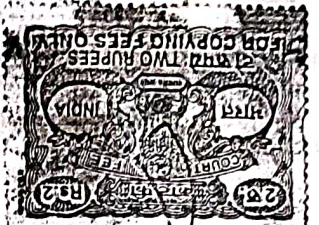 Rs.2 2रु
COURT FEES
INDIA भारत
दो रुपये TWO RUPEES
FOR COPYING FEES ONLY